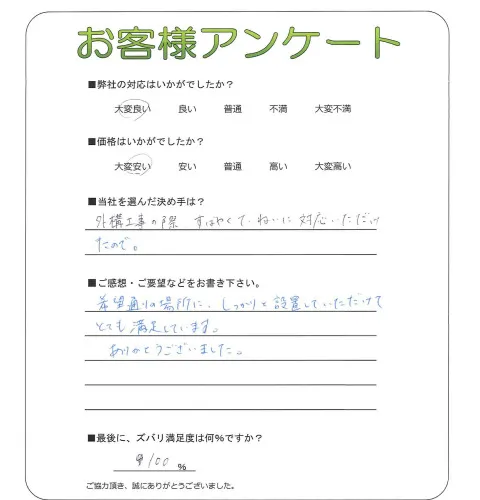 お客様アンケート
■弊社の対応はいかがでしたか？
大変良い 良い 普通 不満 大変不満
■価格はいかがでしたか？
大変安い 安い 普通 高い 大変高い
■当社を選んだ決め手は？
外構工事の際、すばやくていねいに対応いただけ
たので。
■ご感想・ご要望などをお書き下さい。
希望通りの場所に、しっかりと設置していただけて
とても満足しています。
ありがとうございました。
■最後に、ズバリ満足度は何%ですか？
100 %
ご協力頂き、誠にありがとうございました。